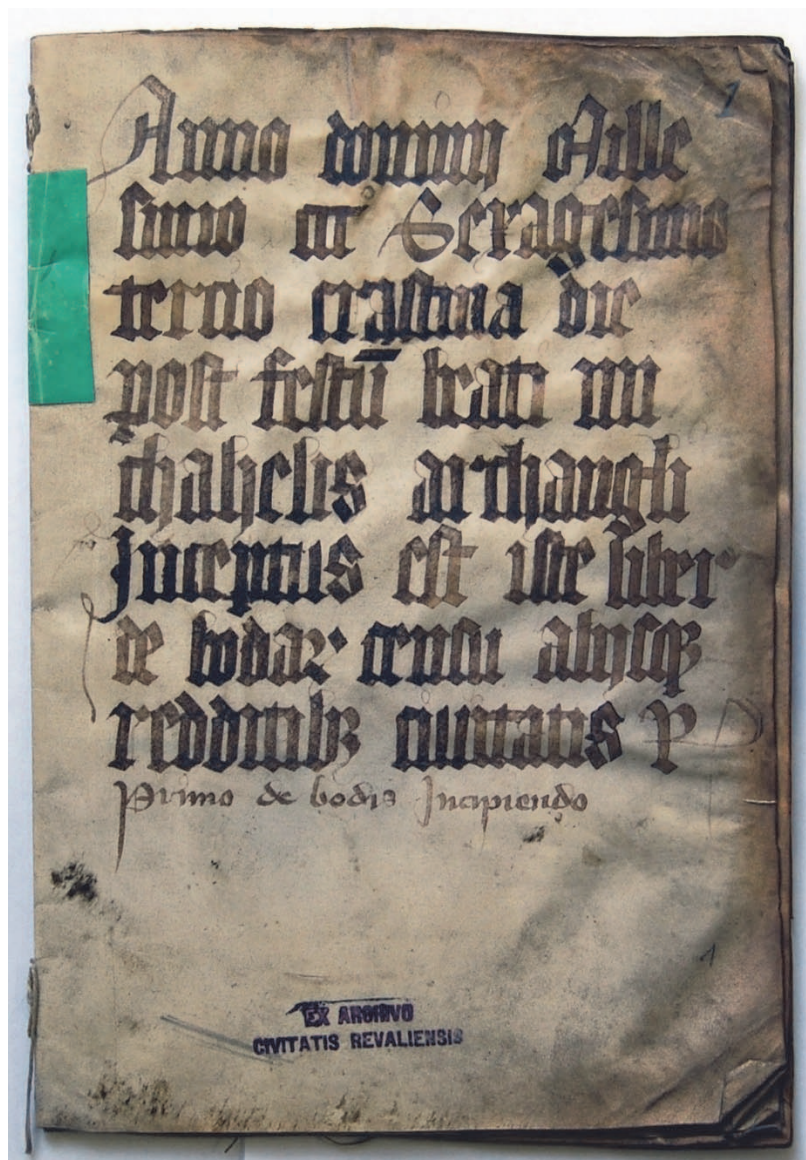 1
Anno domini Mille
simo cccc° Sexagesimo
tercio crastina die
post festū beati mi
chahelis archangeli
Inceptus est iste liber
de bodaꝝ censu alijsqꝫ
redditibꝫ ciuitatis P
Primo de bodis Incipiendo
1
EX ARCHIVO
CIVITATIS REVALIENSIS